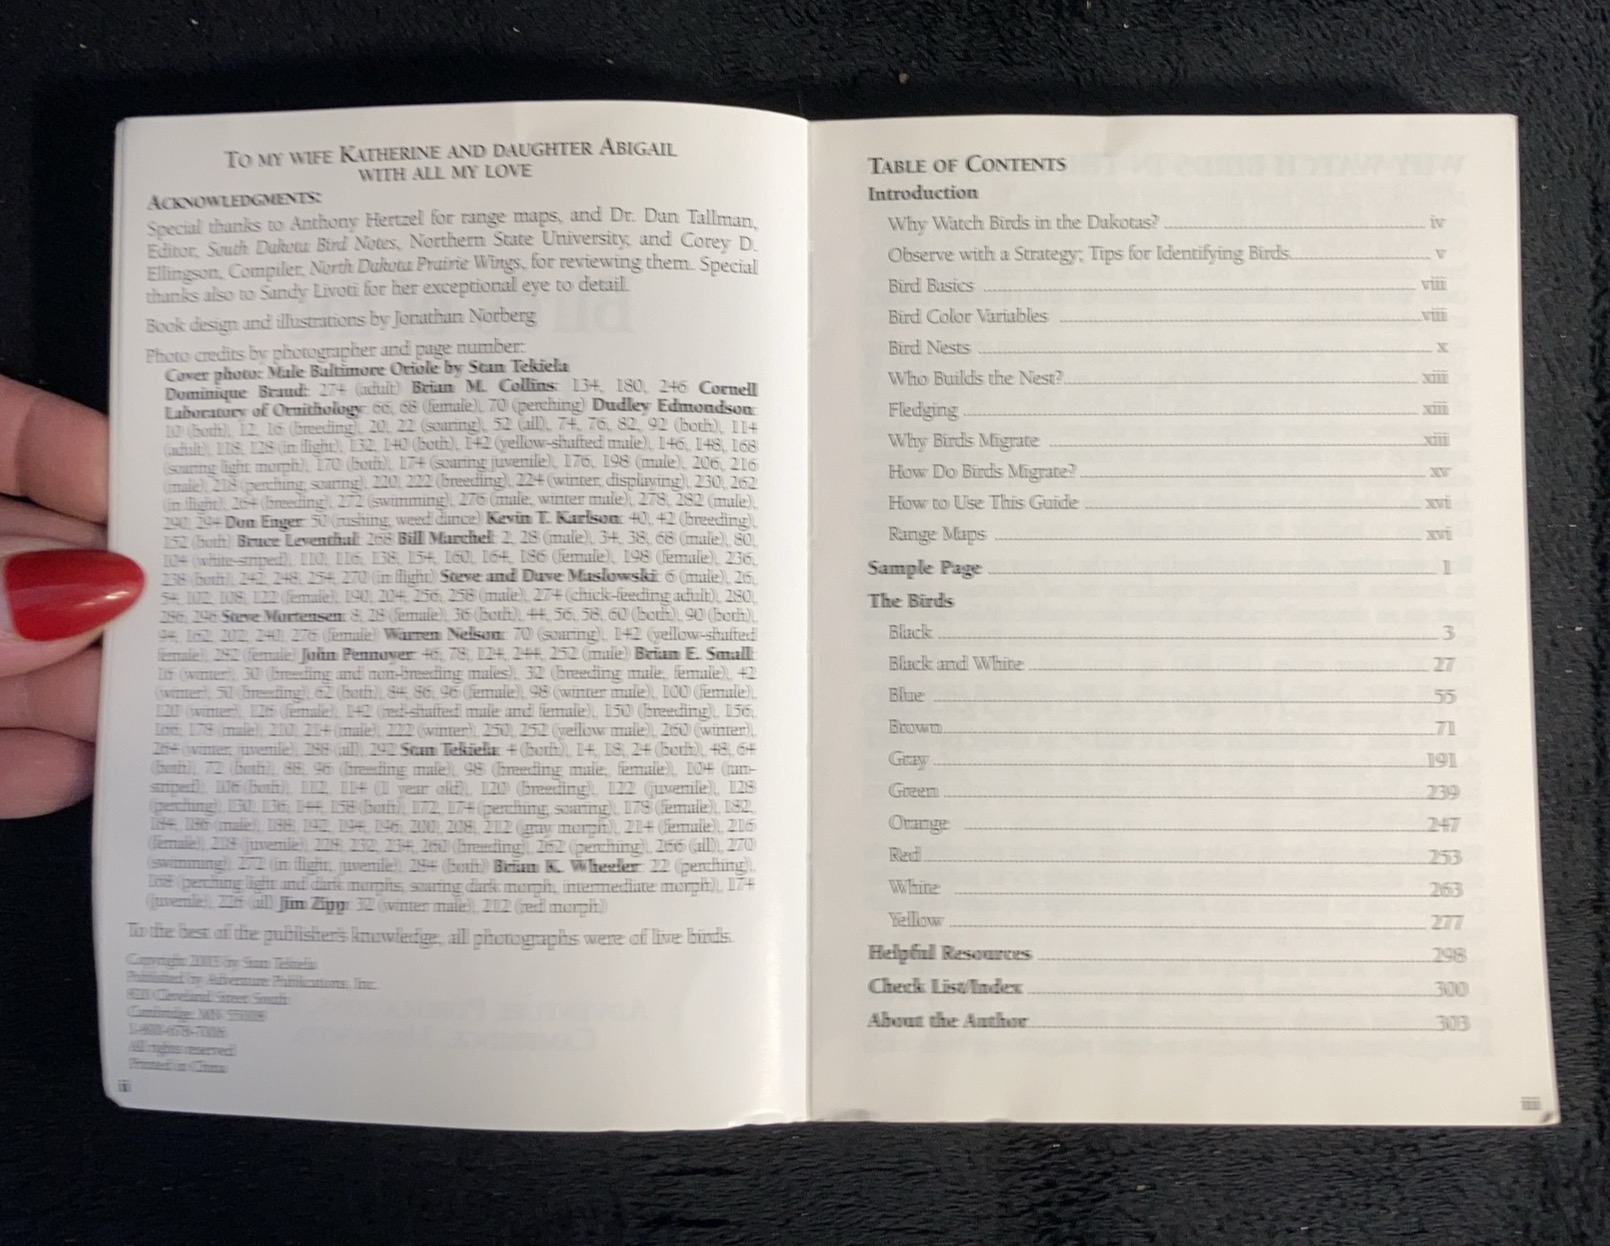 TO MY WIFE KATHERINE AND DAUGHTER ABIGAIL
WITH ALL MY LOVE
ACKNOWLEDGMENTS:
Special thanks to Anthony Hertzel for range maps, and Dr. Dan Tallman,
Editor, South Dakota Bird Notes, Northern State University, and Corey D.
Ellingson, Compiler, North Dakota Prairie Wings, for reviewing them. Special
thanks also to Sandy Livoti for her exceptional eye to detail.
Book design and illustrations by Jonathan Norberg
Photo credits by photographer and page number:
Cover photo: Male Baltimore Oriole by Stan Tekiela
Dominique Braud: 274 (adult) Brian M. Collins: 134, 180, 246 Cornell
Laboratory of Ornithology: 66, 68 (female), 70 (perching) Dudley Edmondson:
10 (both), 12, 16 (breeding), 20, 22 (soaring), 52 (all), 74, 76, 82, 92 (both), 114
(adult), 118, 128 (in flight), 132, 140 (both), 142 (yellow-shafted male), 146, 148, 168
(soaring light morph), 170 (both), 174 (soaring juvenile), 176, 198 (male), 206, 216
(male), 218 (perching, soaring), 220, 222 (breeding), 224 (winter, displaying), 230, 262
(in flight), 264 (breeding), 272 (swimming), 276 (male, winter male), 278, 282 (male),
290, 294 Don Enger: 50 (rushing, weed dance) Kevin T. Karlson: 40, 42 (breeding),
152 (both) Bruce Leventhal: 268 Bill Marchel: 2, 28 (male), 34, 38, 68 (male), 80,
104 (white-striped), 110, 116, 138, 154, 160, 164, 186 (female), 198 (female), 236,
238 (both), 242, 248, 254, 270 (in flight) Steve and Dave Maslowski: 6 (male), 26,
54, 102, 108, 122 (female), 190, 204, 256, 258 (male), 274 (chick-feeding adult), 280,
286, 296 Steve Mortensen: 8, 28 (female), 36 (both), 44, 56, 58, 60 (both), 90 (both),
94, 162, 202, 240, 276 (female) Warren Nelson: 70 (soaring), 142 (yellow-shafted
female), 282 (female) John Pennoyer: 46, 78, 124, 244, 252 (male) Brian E. Small:
16 (winter), 30 (breeding and non-breeding males), 32 (breeding male, female), 42
(winter), 50 (breeding), 62 (both), 84, 86, 96 (female), 98 (winter male), 100 (female),
120 (winter), 126 (female), 142 (red-shafted male and female), 150 (breeding), 156,
166, 178 (male), 210, 214 (male), 222 (winter), 250, 252 (yellow male), 260 (winter),
264 (winter, juvenile), 288 (all), 292 Stan Tekiela: 4 (both), 14, 18, 24 (both), 48, 64
(both), 72 (both), 88, 96 (breeding male), 98 (breeding male, female), 104 (tan-
striped), 106 (both), 112, 114 (1 year old), 120 (breeding), 122 (juvenile), 128
(perching) 130, 136, 144, 158 (both), 172, 174 (perching, soaring), 178 (female), 182,
184, 186 (male), 188, 192, 194, 196, 200, 208, 212 (gray morph), 214 (female), 216
(female), 218 (juvenile), 228, 232, 234, 260 (breeding), 262 (perching), 266 (all), 270
(swimming), 272 (in flight, juvenile), 284 (both) Brian K. Wheeler: 22 (perching),
168 (perching light and dark morphs, soaring dark morph, intermediate morph), 174
(juvenile), 226 (all) Jim Zipp: 32 (winter male), 212 (red morph)
To the best of the publisher's knowledge, all photographs were of live birds.
Copyright 2003 by Stan Tekiela
Published by Adventure Publications, Inc.
820 Cleveland Street South
Cambridge, MN 55008
1-800-678-7006
All rights reserved
Printed in China
ii
TABLE OF CONTENTS
Introduction
Why Watch Birds in the Dakotas? iv
Observe with a Strategy; Tips for Identifying Birds v
Bird Basics viii
Bird Color Variables viii
Bird Nests x
Who Builds the Nest? xiii
Fledging xiii
Why Birds Migrate xiii
How Do Birds Migrate? xv
How to Use This Guide xvi
Range Maps xvi
Sample Page 1
The Birds
Black 3
Black and White 27
Blue 55
Brown 71
Gray 191
Green 239
Orange 247
Red 253
White 263
Yellow 277
Helpful Resources 298
Check List/Index 300
About the Author 303
iii